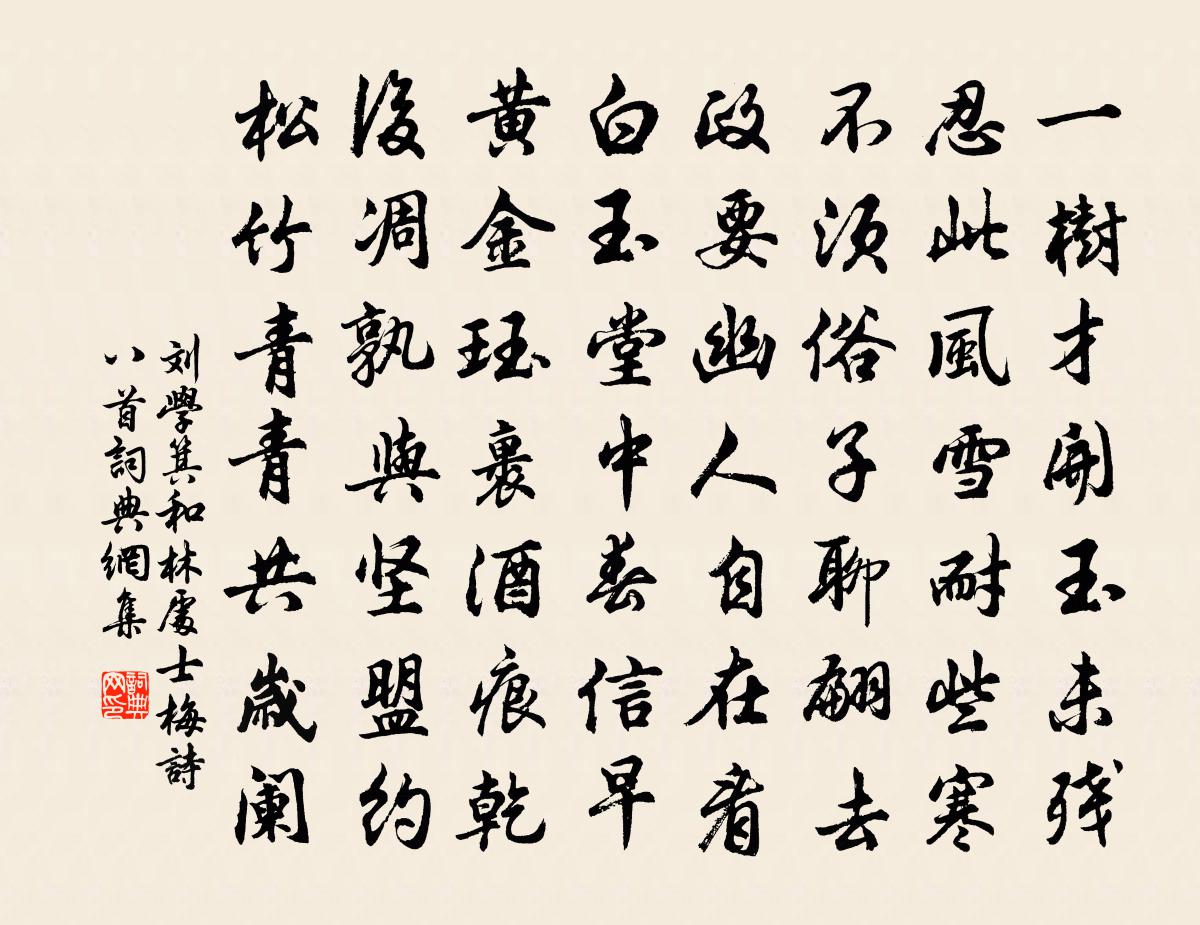 一樹才開玉未殘
忍此風雪耐些寒
不須俗子聊翩去
政要幽人自在看
白玉堂中春信早
黄金珏裹酒痕乾
後凋孰與坚盟約
松竹青青共歲阑
刘學箕和林處士梅詩
八首詞典網集
詞典网印